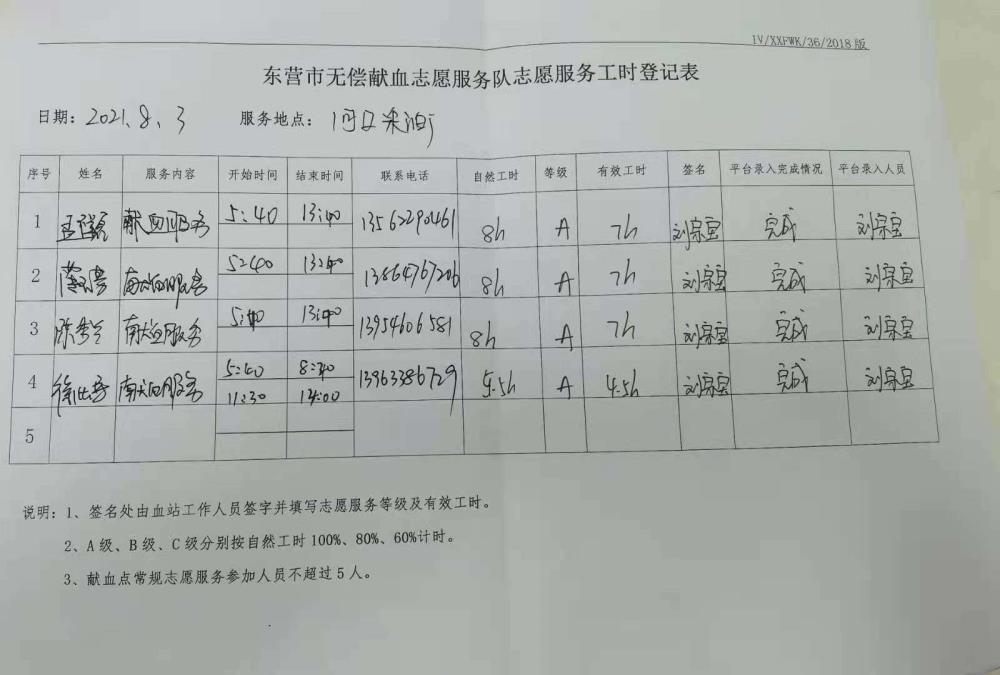 IV/XXFWK/36/2018版
东营市无偿献血志愿服务队志愿服务工时登记表
日期：2021.8.3 服务地点：河口采油厂
序号 姓名 服务内容 开始时间 结束时间 联系电话 自然工时 等级 有效工时 签名 平台录入完成情况 平台录入人员
1 献血服务 5:40 13:40 13562290461 8h A 7h 刘宗宝 完成 刘宗宝
2 献血服务 5:40 13:40 13864767206 8h A 7h 刘宗宝 完成 刘宗宝
3 献血服务 5:40 13:40 13954606581 8h A 7h 刘宗宝 完成 刘宗宝
4 献血服务 5:40 8:40 13963386729 5.5h A 4.5h 刘宗宝 完成 刘宗宝
11:30 14:00
5
说明：1、签名处由血站工作人员签字并填写志愿服务等级及有效工时。
2、A级、B级、C级分别按自然工时100%、80%、60%计时。
3、献血点常规志愿服务参加人员不超过5人。